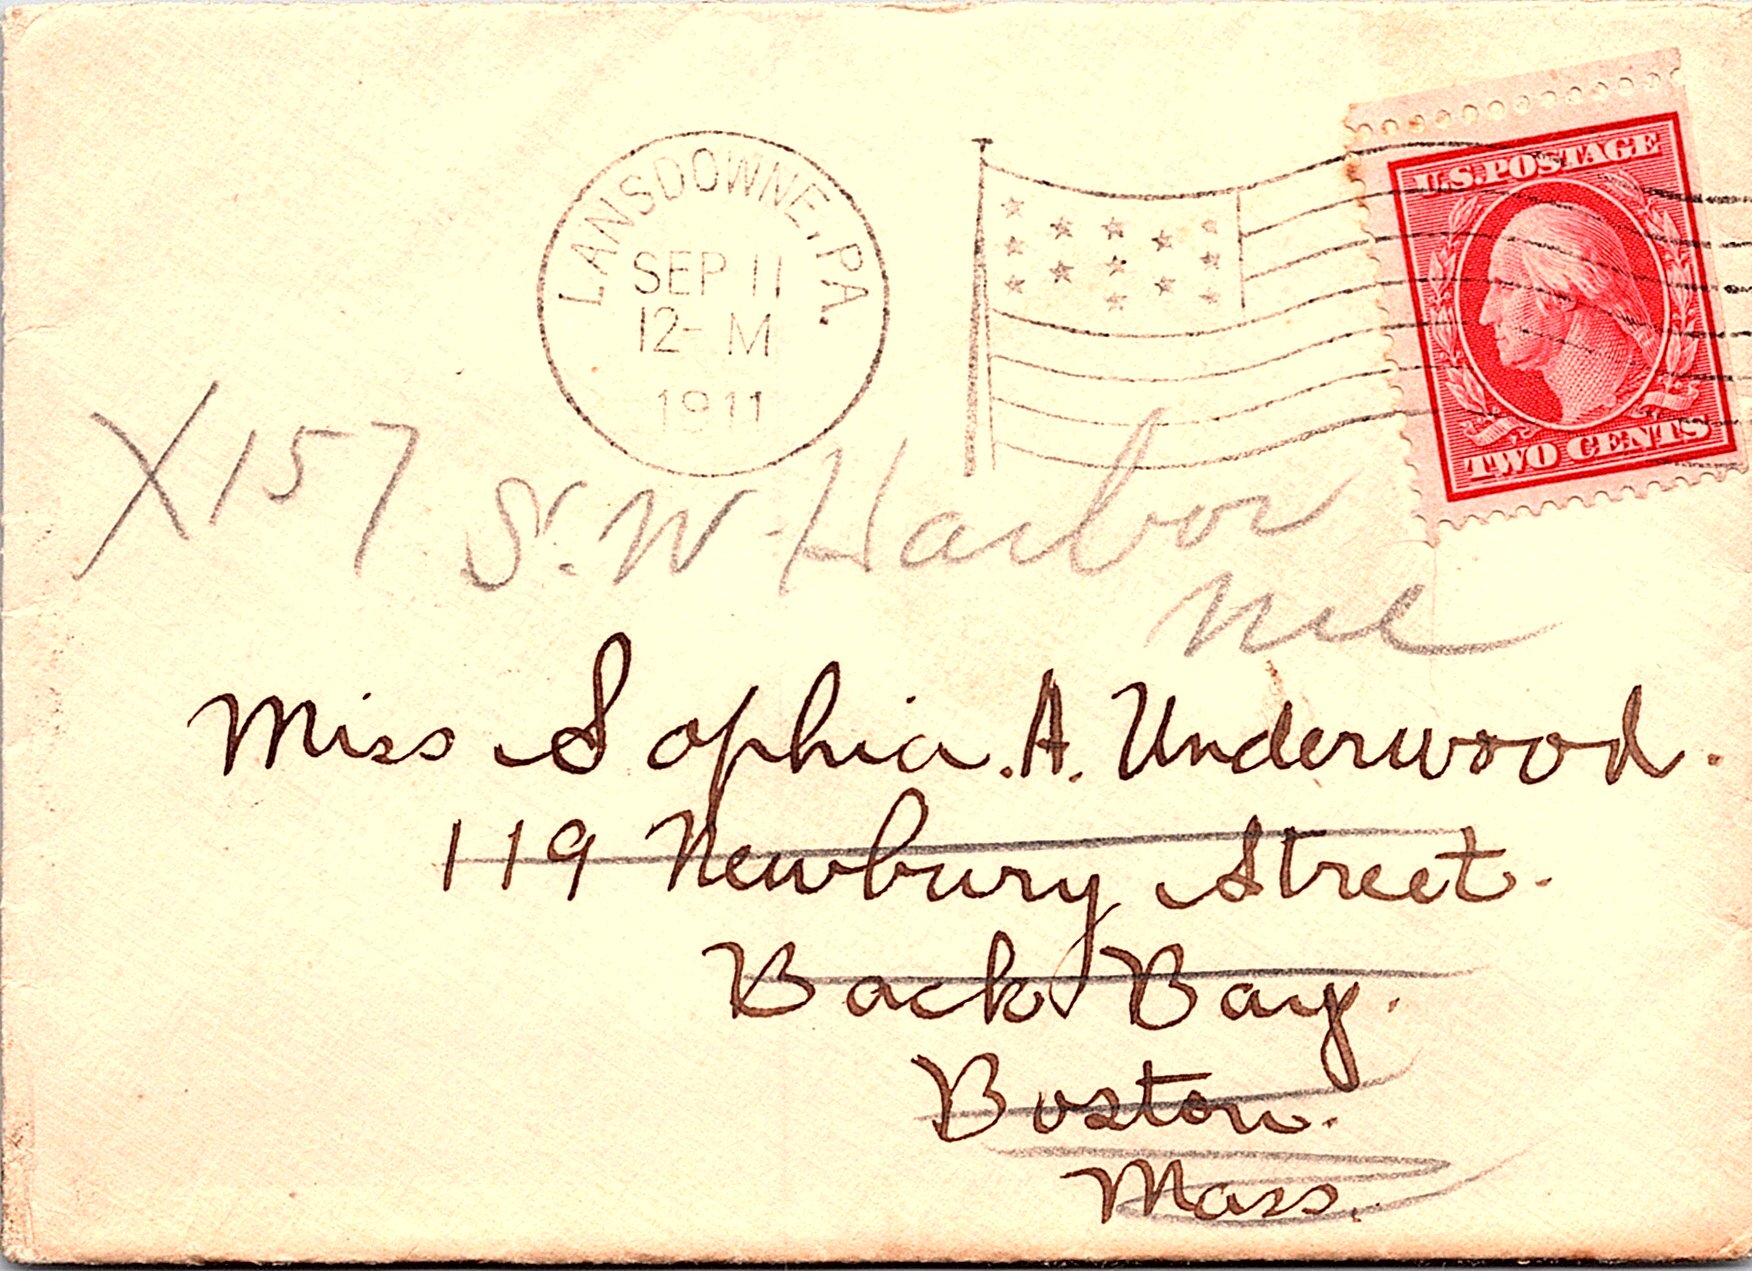 LANSDOWNE, PA.
SEP 11
12- M
1911
U.S. POSTAGE
TWO CENTS
X157 S. W. Harbor
Me
Miss Sophia. A. Underwood.
119 Newbury Street.
Back Bay.
Boston.
Mass.